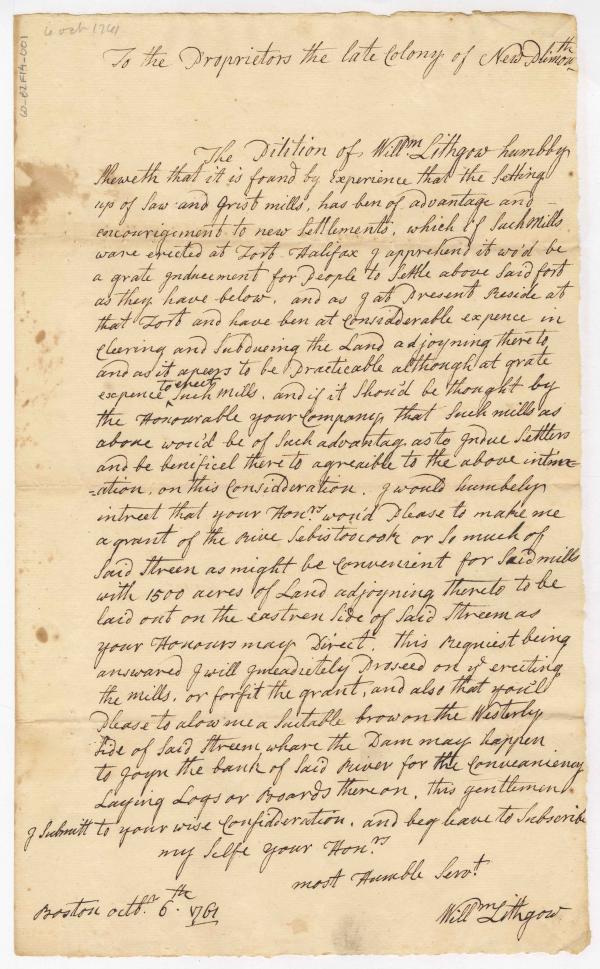 6 Oct 1761
W-62F14-001
To the Proprietors the late Colony of New Plimouth
The Pitition of Willm Lithgow humbly
Sheweth that it is found by Experience that the Setting
up of Saw and Grist mills, has ben of advantage and
encourigement to new Settlements, which if Such Mills
ware erected at Fort Halifax I apprehend it wo'd be
a grate Inducement for People to Settle above Said fort
as they have below, and as I at Present Reside at
that Fort and have ben at Considderable expence in
Cleering and Subdueing the Land adjoyning there to
and as it apeers to be Practicable although at grate
expence to erect Such Mills, and if it Shou'd be thought by
the Honourable your Company, that Such mills as
above wou'd be of Such advantag, as to Indue Settlers
and be benificel there to agreaible to the above intim=
=ation, on this Considderation. I would humbely
intreet that your Honrs wou'd Please to make me
a grant of the Rive Sebistoocook or So much of
Said Streen as might be Convenient for Said mills
with 1500 acres of Land adjoyning thereto to be
laid out on the eastren Side of Said Streem as
your Honours may Direct. this Requiest being
answared I will Imeadietely Proseed on ye erecting
the mills, or forfit the grant, and also that you'l
Please to alow me a Suitable brow on the Westerly
Side of Said Streem, whare the Dam may happen
to Joyn the bank of Said River for the Conveaniency
Laying Logs or Boards thereon, this gentlemen
I Submitt to your wise Considderation. and beg leave to Subscribe
my Selfe your Honrs
most Humble Servt
Boston octbr 6th 1761
Willm Lithgow